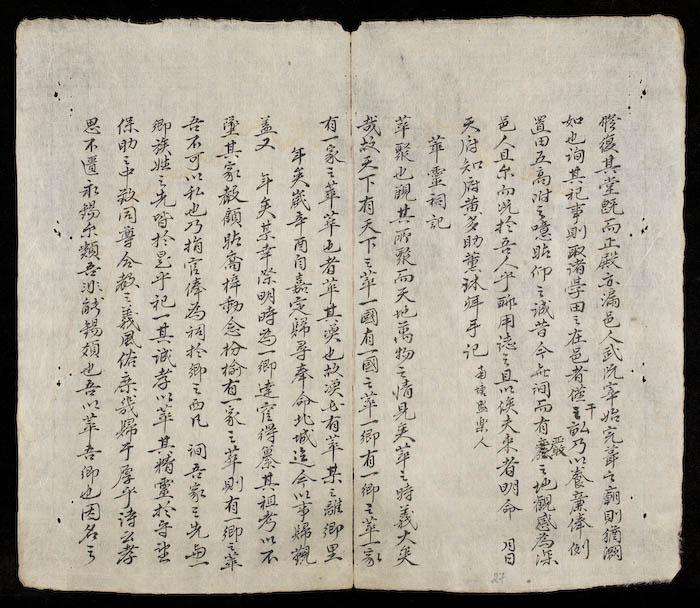 修復其堂既而正殿亦漏邑人武沅寧始完葺之廟則猶
如也詢其祀事則取諸學田之在邑者僅干畝乃以養廉俸例
置田五高附之噫瞻仰之誠昔今無間而有嚴之地觀感為深
邑人且尔而況於吾人乎聊用誌之且以俟夫來者明命 月日
天府知府黃多助拜手記 南盛樂人
萃靈祠記
萃聚也觀其所聚而天地萬物之情見矣萃之時義大矣
哉故天下有天下之萃一國有一國之萃一鄉有一鄉之萃一家
有一家之萃萃也者萃其渙也故渙必有萃某之離鄉里
年矣歲辛酉自嘉定歸尋奉命北城迄今以事歸覲
盖又 年矣某幸際明時為一鄉達宦得纂其祖考以不
墜其家教顧瞻喬梓動念枌榆有一家之萃則有一鄉之萃
吾不可以私也乃捐官俸為祠於鄉之西凡 祠吾家之先與
鄉族姓之先皆於是乎祀一其誠孝以萃其精靈於守望
保助之中敦同尊合敬之義風俗庶幾歸乎厚乎詩云孝
思不匱永錫尔類吾非能錫類也吾以萃吾鄉也因名之
27